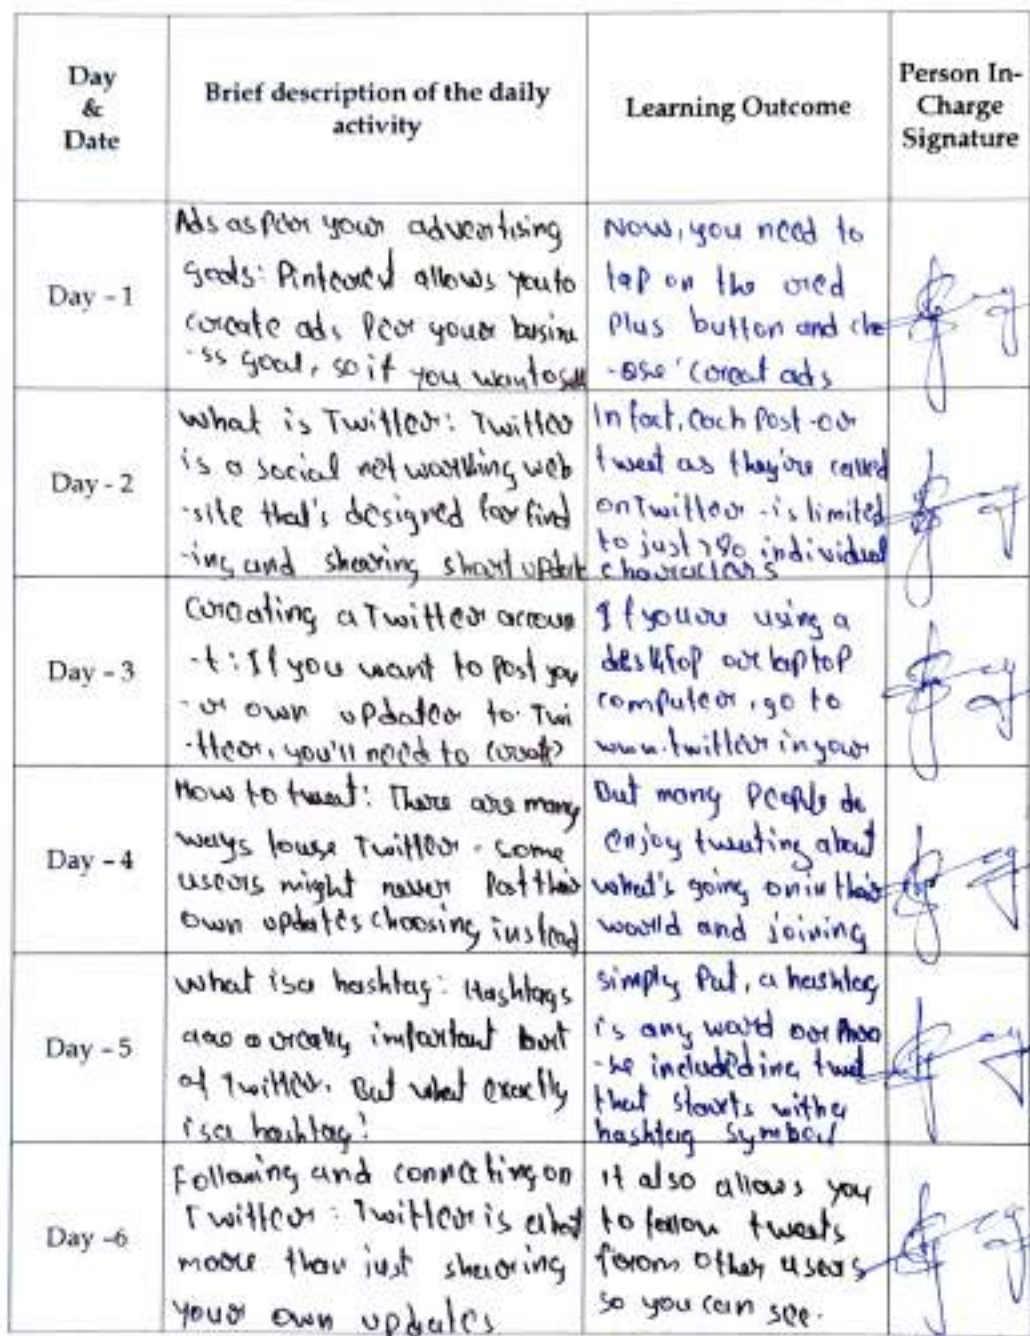 Day
&
Date
Brief description of the daily
activity
Learning Outcome
Person In-
Charge
Signature
Day - 1
Ads as per your advertising
goals: Pinterest allows you to
create ads per your busine
-ss goal, so if you want to sell
Now, you need to
tap on the red
Plus button and cho
-ose 'creat ads
Day - 2
What is Twitter: Twitter
is a social networking web
-site that's designed for find
-ing and shearing short update
In fact, each post - or
tweet as they're called
on Twitter - is limited
to just 280 individual
characters
Day - 3
Creating a Twitter accoun
-t: If you want to post you
-r own updater to Twi
-tter, you'll need to create
If your using a
desktop or laptop
computer, go to
www.twitter in your
Day - 4
How to tweet: There are many
ways to use Twitter - some
users might never Post their
own updates choosing instead
But many People do
enjoy tweeting about
what's going on in their
world and joining
Day - 5
What is a hashtag: Hashtags
are a really important part
of Twitter. But what exactly
is a hashtag?
simply Put, a hashtag
is any word or phra
-se included in a tweet
that starts with a
hashtag symbol
Day -6
Following and connecting on
Twitter: Twitter is about
more than just shearing
your own updates
It also allows you
to follow tweets
from other users
so you can see.